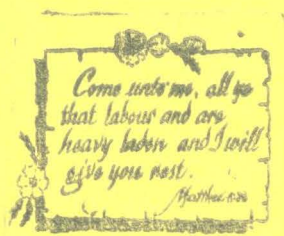 Come unto me, all ye
that labour and are
heavy laden and I will
give you rest.
Matthew 11:28